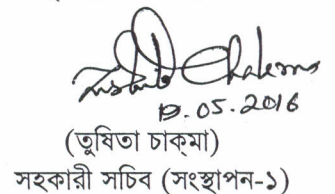 19.05.2016
(তুষিতা চাক্‌মা)
সহকারী সচিব (সংস্থাপন-১)